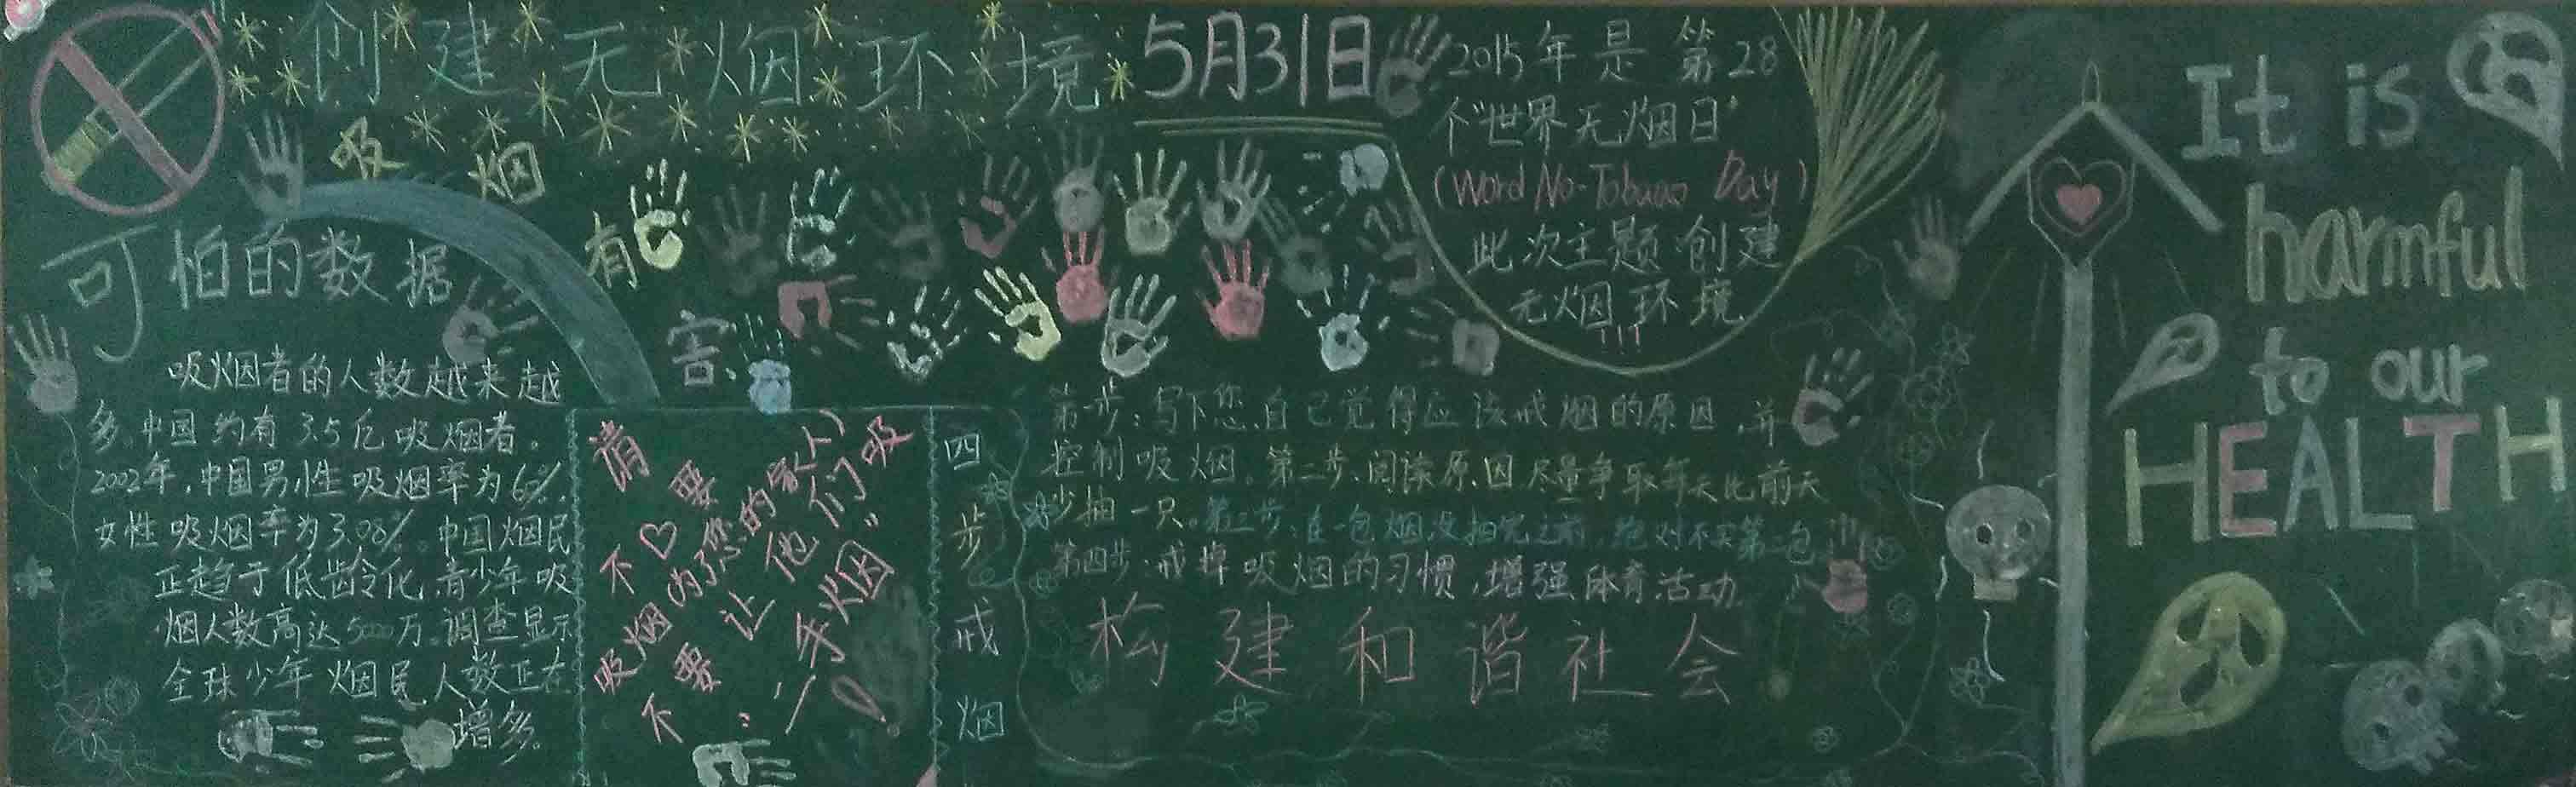 创建无烟环境
5月31日
2015年是第28
个“世界无烟日”
(Word No-Tobacco Day)
此次主题:创建
无烟环境
!!!
吸烟有害
可怕的数据
吸烟者的人数越来越
多、中国约有3.5亿吸烟者。
2002年,中国男性吸烟率为66%,
女性吸烟率为3.08%。中国烟民
正趋于低龄化,青少年吸
烟人数高达5000万,调查显示
全球少年烟民人数正在
增多。
请不要吸烟
为了您的家人
不要让他们吸
“二手烟”!
四步戒烟
第一步:写下您自己觉得应该戒烟的原因,并
控制吸烟。第二步、阅读原因尽量争取每天比前天
少抽一只。第三步:在一包烟没抽完之前,绝对不买第二包
第四步:戒掉吸烟的习惯,增强体育活动
构建和谐社会
It is
harmful
to our
HEALTH